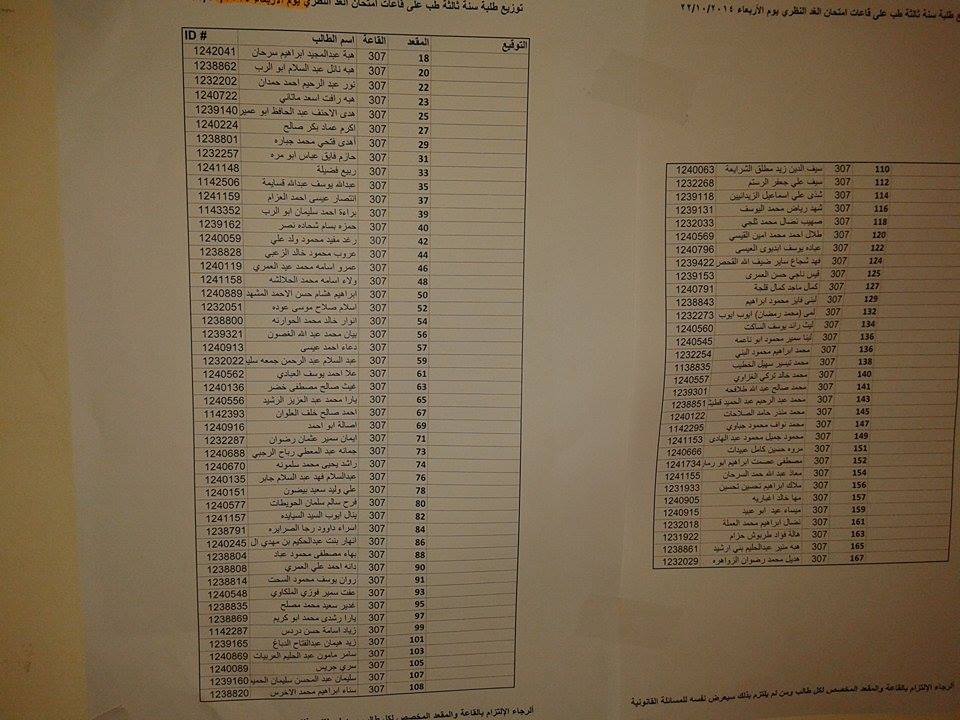 توزيع طلبة سنة ثالثة طب على قاعات امتحان الغد النظري يوم الأربعاء
ID # اسم الطالب القاعة المقعد التوقيع
1242041 هبة عبدالمجيد ابراهيم سرحان 307 18
1238862 هبه نائل عبد السلام ابو الرب 307 20
1232202 نور عبد الرحيم احمد حمدان 307 22
1240722 هبه رافت اسعد ماتاني 307 23
1239140 هدى الاحنف عبد الحافظ ابو عمير 307 25
1240224 اكرم عماد بكر صالح 307 27
1238801 أهدى فتحي محمد جباره 307 29
1232257 حازم فايق عباس ابو مره 307 31
1241148 ربيع فضيلة 307 33
1142506 عبدالله يوسف عبدالله قسايمة 307 35
1241159 انتصار عيسى احمد العزام 307 37
1143352 براءة احمد سليمان ابو الرب 307 39
1239162 حمزه بسام شحاده نصر 307 40
1240059 رغد مفيد محمود ولد علي 307 42
1238828 عروب محمود خالد الزعبي 307 44
1240119 عمرو اسامه محمد عيد العمري 307 46
1241158 ولاء اسامه محمد الحلالشه 307 48
1240889 ابراهيم هشام حسن الاحمد المشهد 307 50
1232051 اسلام صلاح موسى عوده 307 52
1238800 انوار خالد محمد الحوارنه 307 54
1239321 بيان محمد عبد الله الغصون 307 56
1240913 دعاء احمد عيسى 307 57
1232022 عبد السلام عبد الرحمن جمعه سليـ 307 59
1240562 علا احمد يوسف العبادي 307 61
1240136 غيث صالح مصطفى خضر 307 63
1240556 يارا محمد عبد العزيز الرشيد 307 65
1142393 احمد صالح خلف العلوان 307 67
1240916 اصالة ابو احمد 307 69
1232287 ايمان سمير عثمان رضوان 307 71
1240688 جمانه عبد المعطي رباح الرجبي 307 73
1240670 راشد يحيى محمد سلمونه 307 74
1240135 عبدالسلام فهد عبد السلام جابر 307 76
1240151 علي وليد سعيد بيضون 307 78
1240577 فرح سالم سلمان الحويطات 307 80
1241157 ينال ايوب السيد السيايده 307 82
1238791 اسراء داوود رجا الصرايره 307 84
1240245 انهار بنت عبدالحكيم بن مهدي ال 307 86
1238804 بهاء مصطفى محمود عباد 307 88
1238808 دانه احمد علي العمري 307 90
1238814 روان يوسف محمود السحت 307 91
1240548 عفت سمير فوزي الملكاوي 307 93
1238835 غدير سعيد محمد مصلح 307 95
1238869 يارا رشدى محمد ابو كريم 307 97
1142287 زياد اسامة حسن دردس 307 99
1239165 زيد هيمان عبدالفتاح الدباغ 307 101
1240869 سامر مامون عبد الحليم العربيات 307 103
1240089 سري جريس 307 105
1239160 سليمان عبد المحسن سليمان الحميد 307 107
1238820 سناء ابراهيم محمد الاخرس 307 108
الرجاء الإلتزام بالقاعة والمقعد المخصص لكل طالب
طلبة سنة ثالثة طب على قاعات امتحان الغد النظري يوم الأربعاء ٢٢/١٠/٢٠١٤
1240063 سيف الدين زيد مطلق الشرايعة 307 110
1232268 سيف علي جعفر الرستم 307 112
1239118 شذى علي اسماعيل الزيدانيين 307 114
1239131 شهد رياض محمد اليوسف 307 116
1232033 صهيب نضال محمد ثلجي 307 118
1240569 طلال احمد محمد امين القيسي 307 120
1240796 عباده يوسف ابديوى العيسى 307 122
1239422 فهد شجاع ساير ضيف الله الفحص 307 124
1239153 قيس ناجي حسن العمرى 307 125
1240791 كمال ماجد كمال قلجة 307 127
1238843 لبنى فايز محمود ابراهيم 307 129
1232273 لمى (محمد رمضان) ايوب ايوب 307 132
1240560 ليث رائد يوسف الساكت 307 134
1240545 لينا سمير محمود ابو ناعمه 307 136
1232254 محمد ابراهيم محمود البني 307 136
1138835 محمد تيسير سهيل الخطيب 307 138
1240557 محمد خالد تركي الغزاوي 307 140
1239301 محمد صالح عبد الله طلافحه 307 141
1238851 محمد عبد الرحيم عبد الحميد قطيشـ 307 143
1240122 محمد منذر حامد الصلاحات 307 145
1142295 محمد نواف محمود جباوي 307 147
1241153 محمود جميل محمود عبد الهادى 307 149
1240666 مروه حسين كامل عبيدات 307 151
1241734 مصطفى عصمت ابراهيم ابو رمان 307 152
1241155 معاذ عبد الله حمد السرحان 307 154
1231933 ملاك ابراهيم تحسين تحسين 307 156
1240905 مها خالد اغباريه 307 157
1240915 ميساء عيد ابو عبيد 307 159
1232018 نضال ابراهيم محمد العملة 307 161
1231922 هالة فؤاد طربوش حزام 307 163
1238861 هبه منير عبدالحليم بني ارشيد 307 165
1232029 هديل محمد رضوان الزواهره 307 167
الرجاء الإلتزام بالقاعة والمقعد المخصص لكل طالب ومن لم يلتزم بذلك سيعرض نفسه للمسائلة القانونية